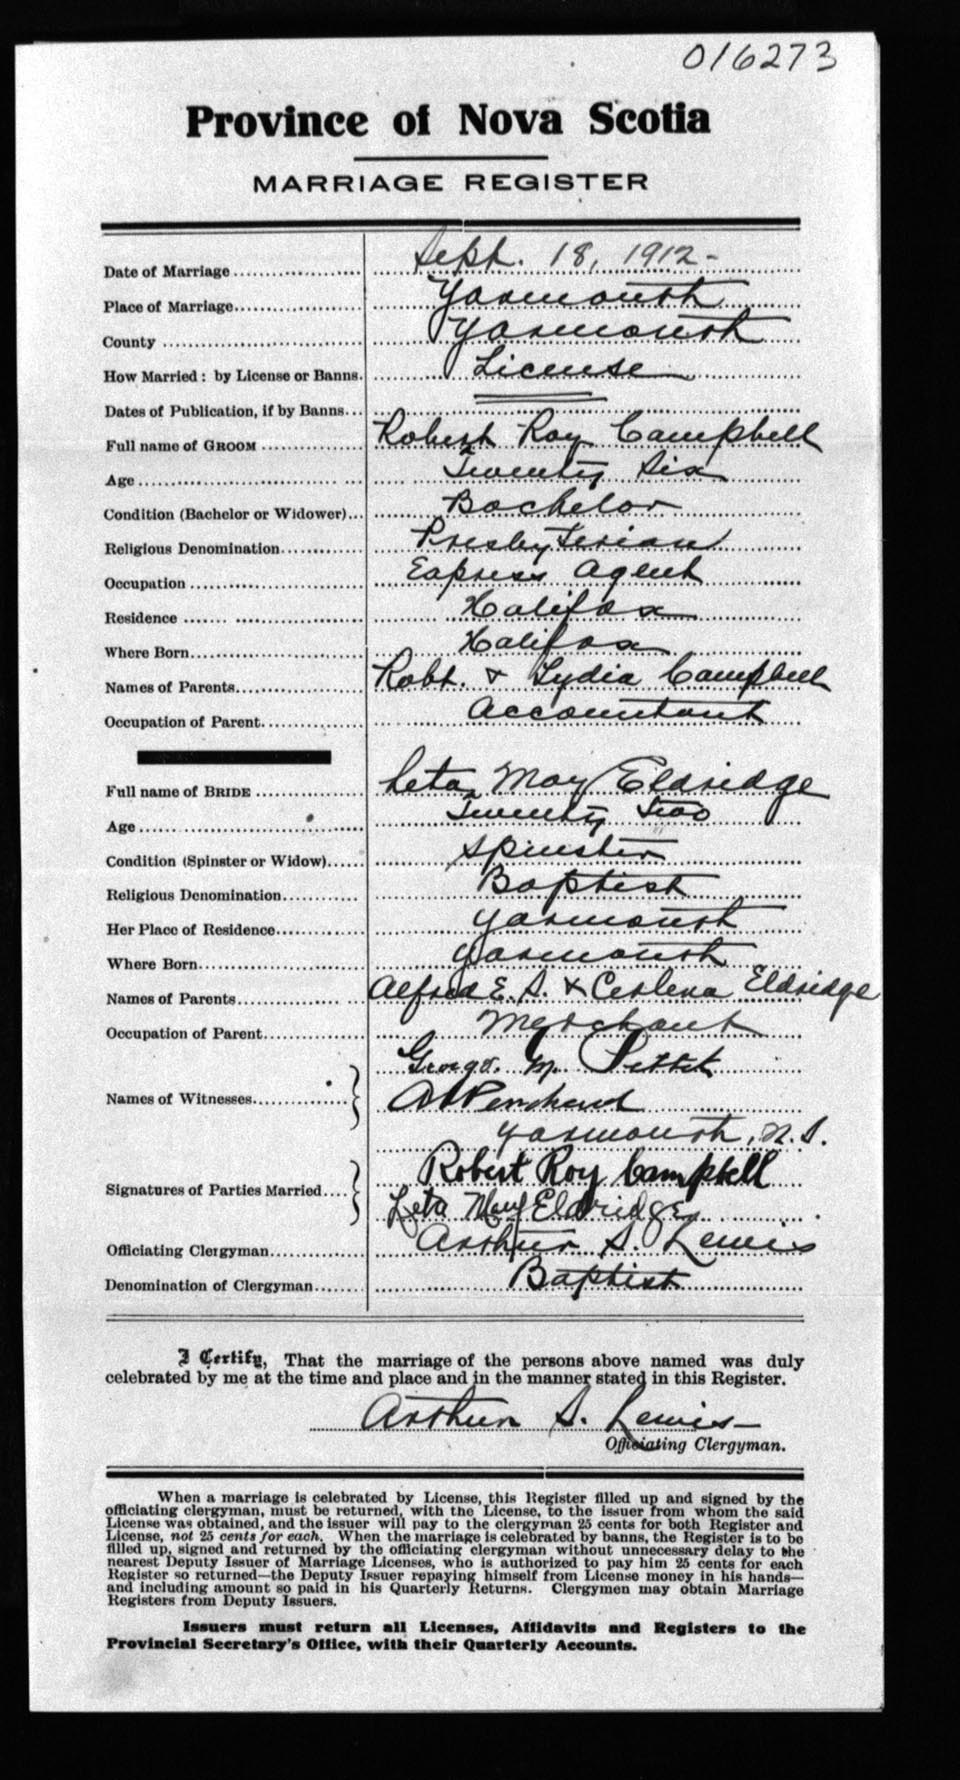 016273
Province of Nova Scotia
MARRIAGE REGISTER
Date of Marriage Sept. 18, 1912-
Place of Marriage Yarmouth
County Yarmouth
How Married: by License or Banns. License
Dates of Publication, if by Banns
Full name of GROOM Robert Roy Campbell
Age Twenty Six
Condition (Bachelor or Widower) Bachelor
Religious Denomination Presbyterian
Occupation Express Agent
Residence Halifax
Where Born Halifax
Names of Parents Robt. & Lydia Campbell
Occupation of Parent Accountant
Full name of BRIDE Leta May Eldridge
Age Twenty Two
Condition (Spinster or Widow) Spinster
Religious Denomination Baptist
Her Place of Residence Yarmouth
Where Born Yarmouth
Names of Parents Alfred E. S. & Eldridge
Occupation of Parent Merchant
George. M.
Names of Witnesses
Yarmouth, N.S.
Robert Roy Campbell
Signatures of Parties Married
Leta May Eldridge
Officiating Clergyman Arthur S. Lewis
Denomination of Clergyman Baptist
I Certify, That the marriage of the persons above named was duly
celebrated by me at the time and place and in the manner stated in this Register.
Arthur S. Lewis
Officiating Clergyman.
When a marriage is celebrated by License, this Register filled up and signed by the
officiating clergyman, must be returned, with the License, to the issuer from whom the said
License was obtained, and the issuer will pay to the clergyman 25 cents for both Register and
License, not 25 cents for each. When the marriage is celebrated by banns, the Register is to be
filled up, signed and returned by the officiating clergyman without unnecessary delay to the
nearest Deputy Issuer of Marriage Licenses, who is authorized to pay him 25 cents for each
Register so returned—the Deputy Issuer repaying himself from License money in his hands—
and including amount so paid in his Quarterly Returns. Clergymen may obtain Marriage
Registers from Deputy Issuers.
Issuers must return all Licenses, Affidavits and Registers to the
Provincial Secretary's Office, with their Quarterly Accounts.